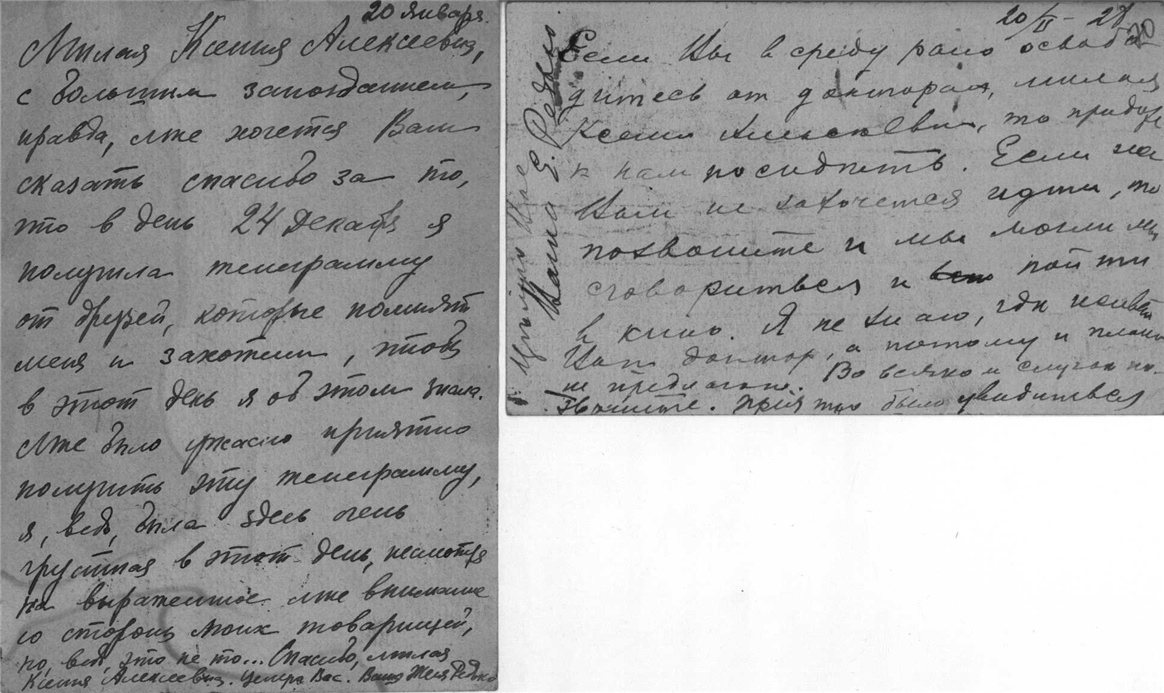 20 января.
Милая Ксения Алексеевна,
с большим запозданием,
правда, мне хочется Вам
сказать спасибо за то,
что в день 24 декабря я
получила телеграмму
от друзей, которые помнят
меня и захотели, чтобы
в этот день я об этом знала.
Мне было ужасно приятно
получить эту телеграмму,
я, ведь, была здесь очень
грустная в этот день, несмотря
на выраженное мне внимание
со стороны моих товарищей,
но, ведь, это не то... Спасибо, милая
Ксения Алексеевна. Целую Вас. Ваша Женя Редько
20/II - 28
Если Вы в среду рано освобо
дитесь от доктора, милая
Ксения Алексеевна, то приходите
к нам посидеть. Если же
Вам не захочется идти, то
позвоните и мы могли бы
сговориться и пойти
в кино. Я не знаю, где живет
Ваш доктор, а потому и плана
не предлагаю. Во всяком случае по-
звоните. Приятно было увидиться
Целую Вас
Ваша Е. Редько.